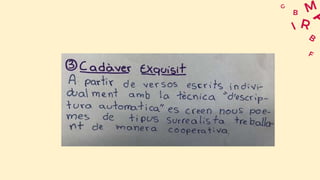 ③ Cadàver Exquisit
A partir de versos escrits indivi-
dualment amb la tècnica "d'escrip-
tura automàtica" es creen nous poe-
mes de tipus surrealista treballa-
nt de manera cooperativa.
G B I R M B F